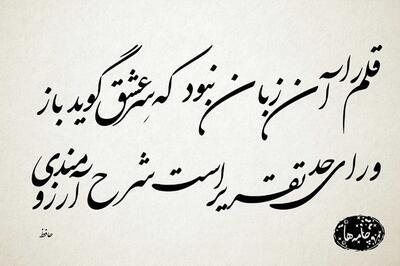 قلم را آن زبان نبود که سِرِّ عشق گوید باز
ورای حد تقریر است شرح آرزومندی
حافظ